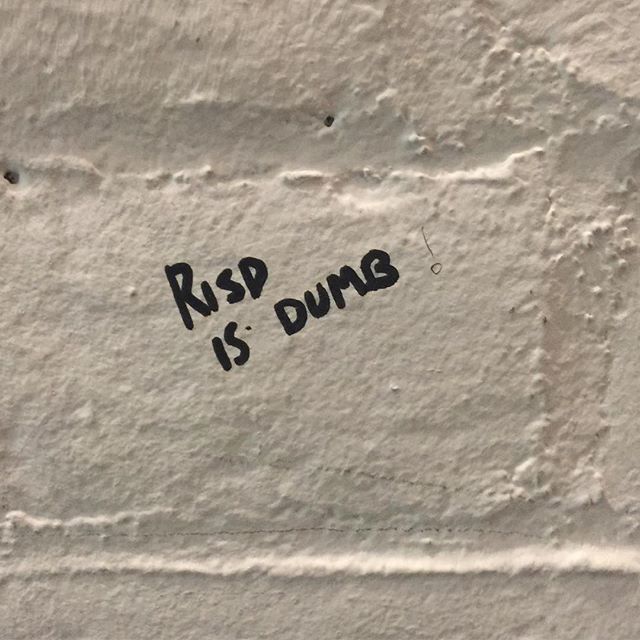 RISD
IS DUMB!